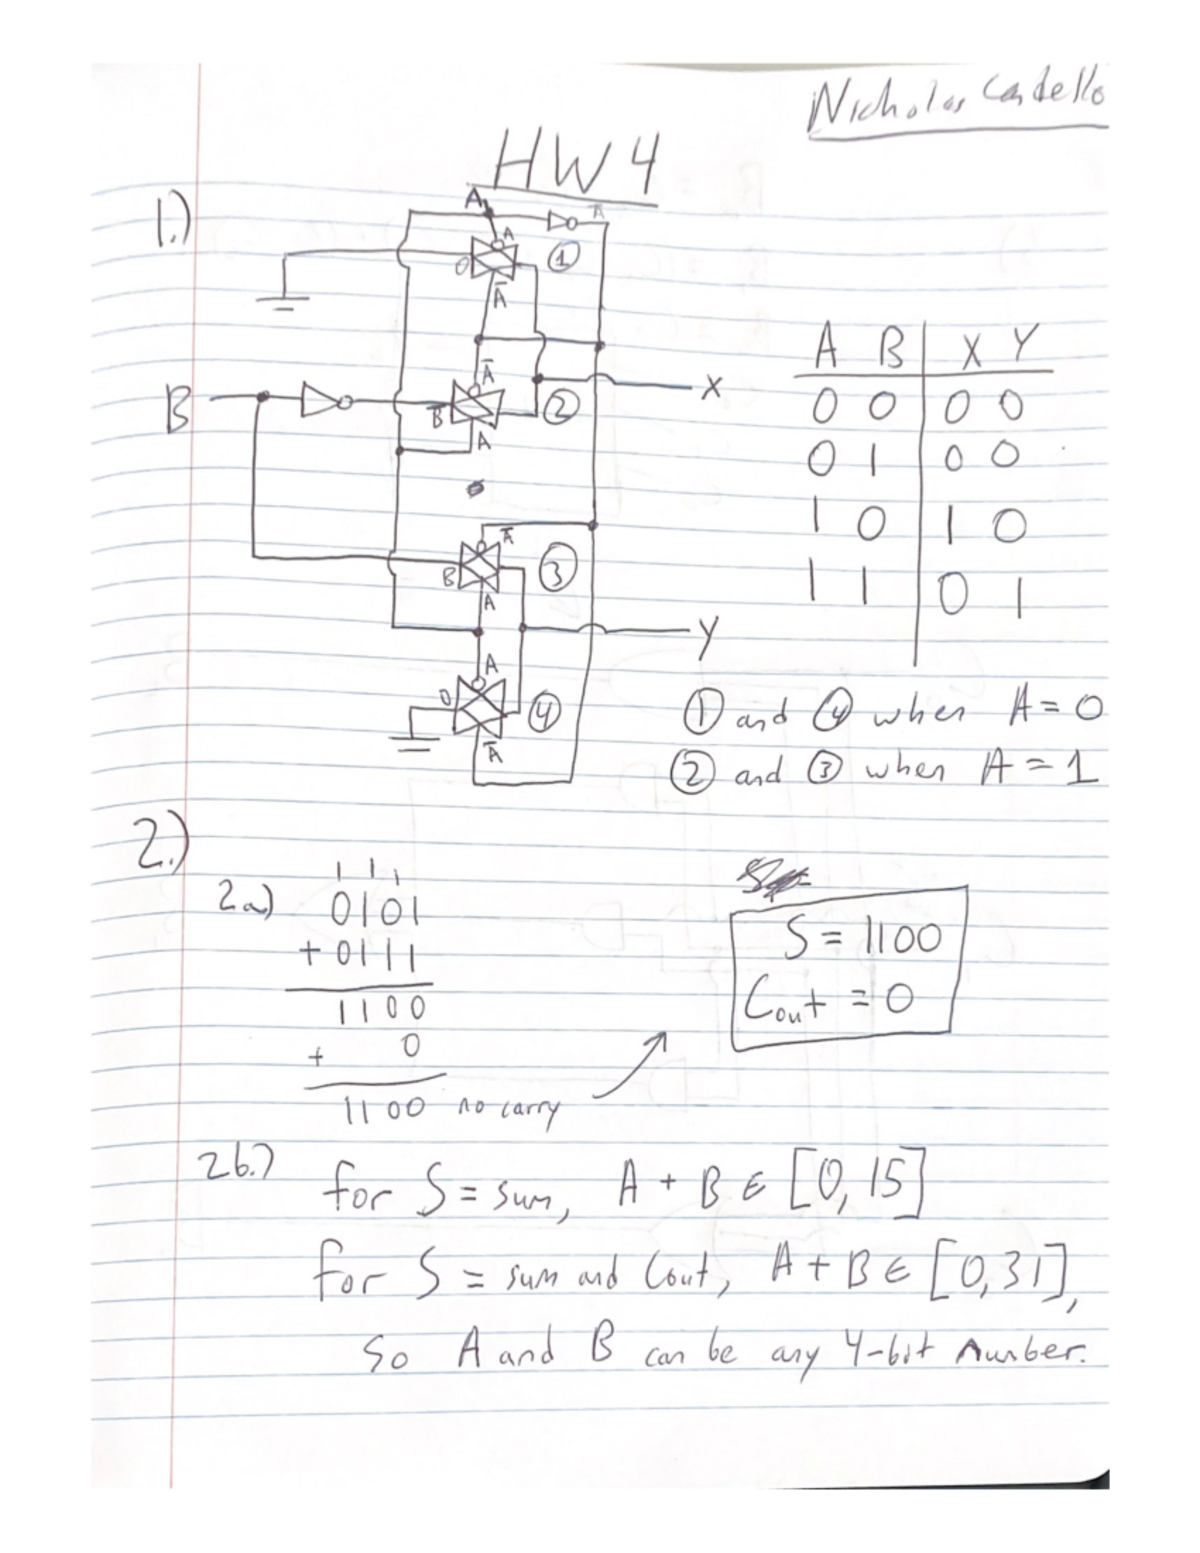 Nicholas Cardello
HW 4
1.)
A
A̅
A
0
①
A̅
A̅
B
B̅
②
X
A
A̅
B
③
A
Y
A
0
④
A̅
A B | X Y
0 0 | 0 0
0 1 | 0 0
1 0 | 1 0
1 1 | 0 1
① and ④ when A = 0
② and ③ when A = 1
2.)
1 1 1
2a) 0101
+ 0111
1100
+ 0
1100 no carry
S = 1100
Cout = 0
2b.)
for S = sum, A + B ∈ [0, 15]
for S = sum and Cout, A + B ∈ [0,31],
so A and B can be any 4-bit number.